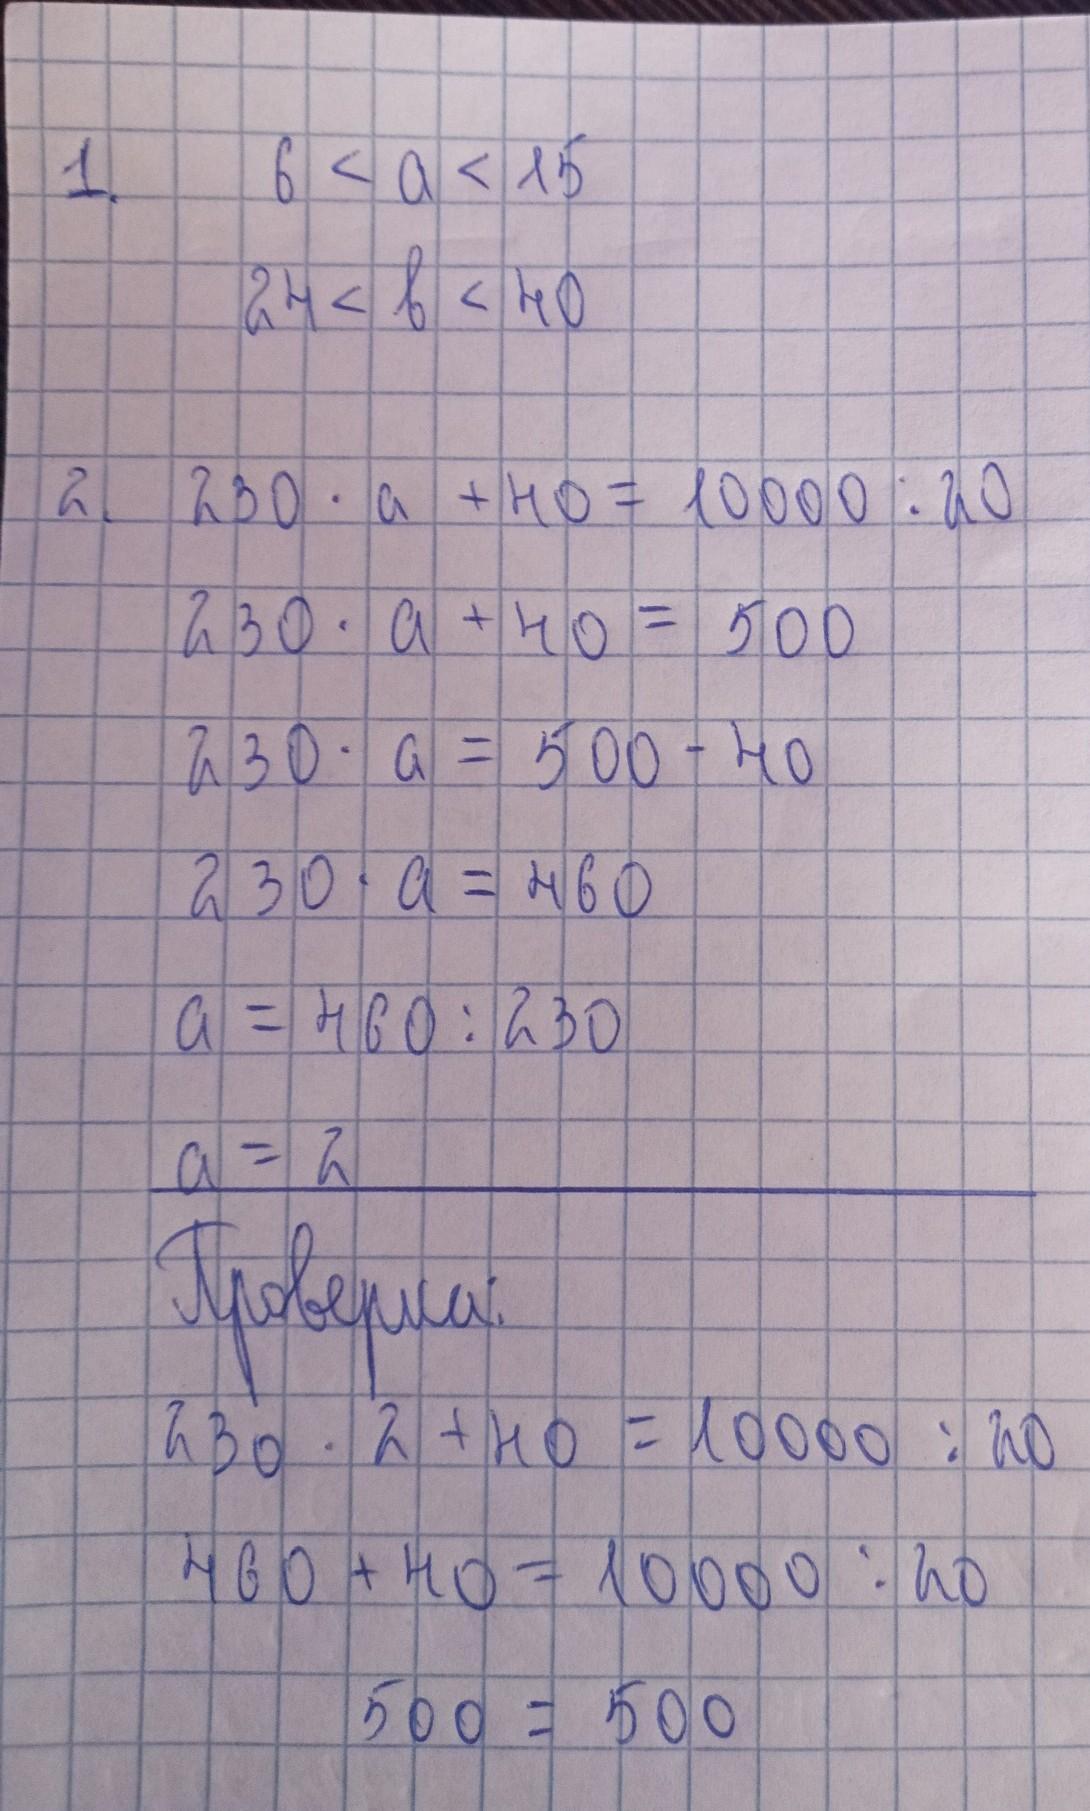 1. 6 < a < 15
24 < в < 40
2. 230 · a + 40 = 10000 : 20
230 · a + 40 = 500
230 · a = 500 - 40
230 · a = 460
a = 460 : 230
a = 2
Проверка:
230 · 2 + 40 = 10000 : 20
460 + 40 = 10000 : 20
500 = 500